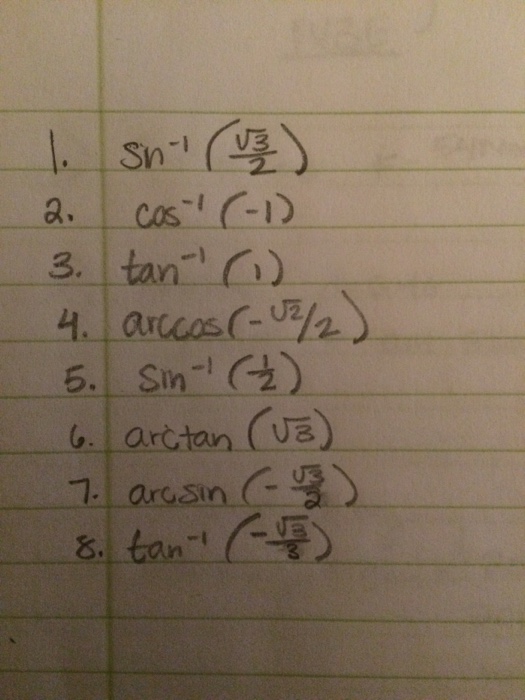 1. sin⁻¹ (√3/2)
2. cos⁻¹ (-1)
3. tan⁻¹ (1)
4. arccos (-√2/2)
5. sin⁻¹ (1/2)
6. arctan (√3)
7. arcsin (-√3/2)
8. tan⁻¹ (-√3/3)